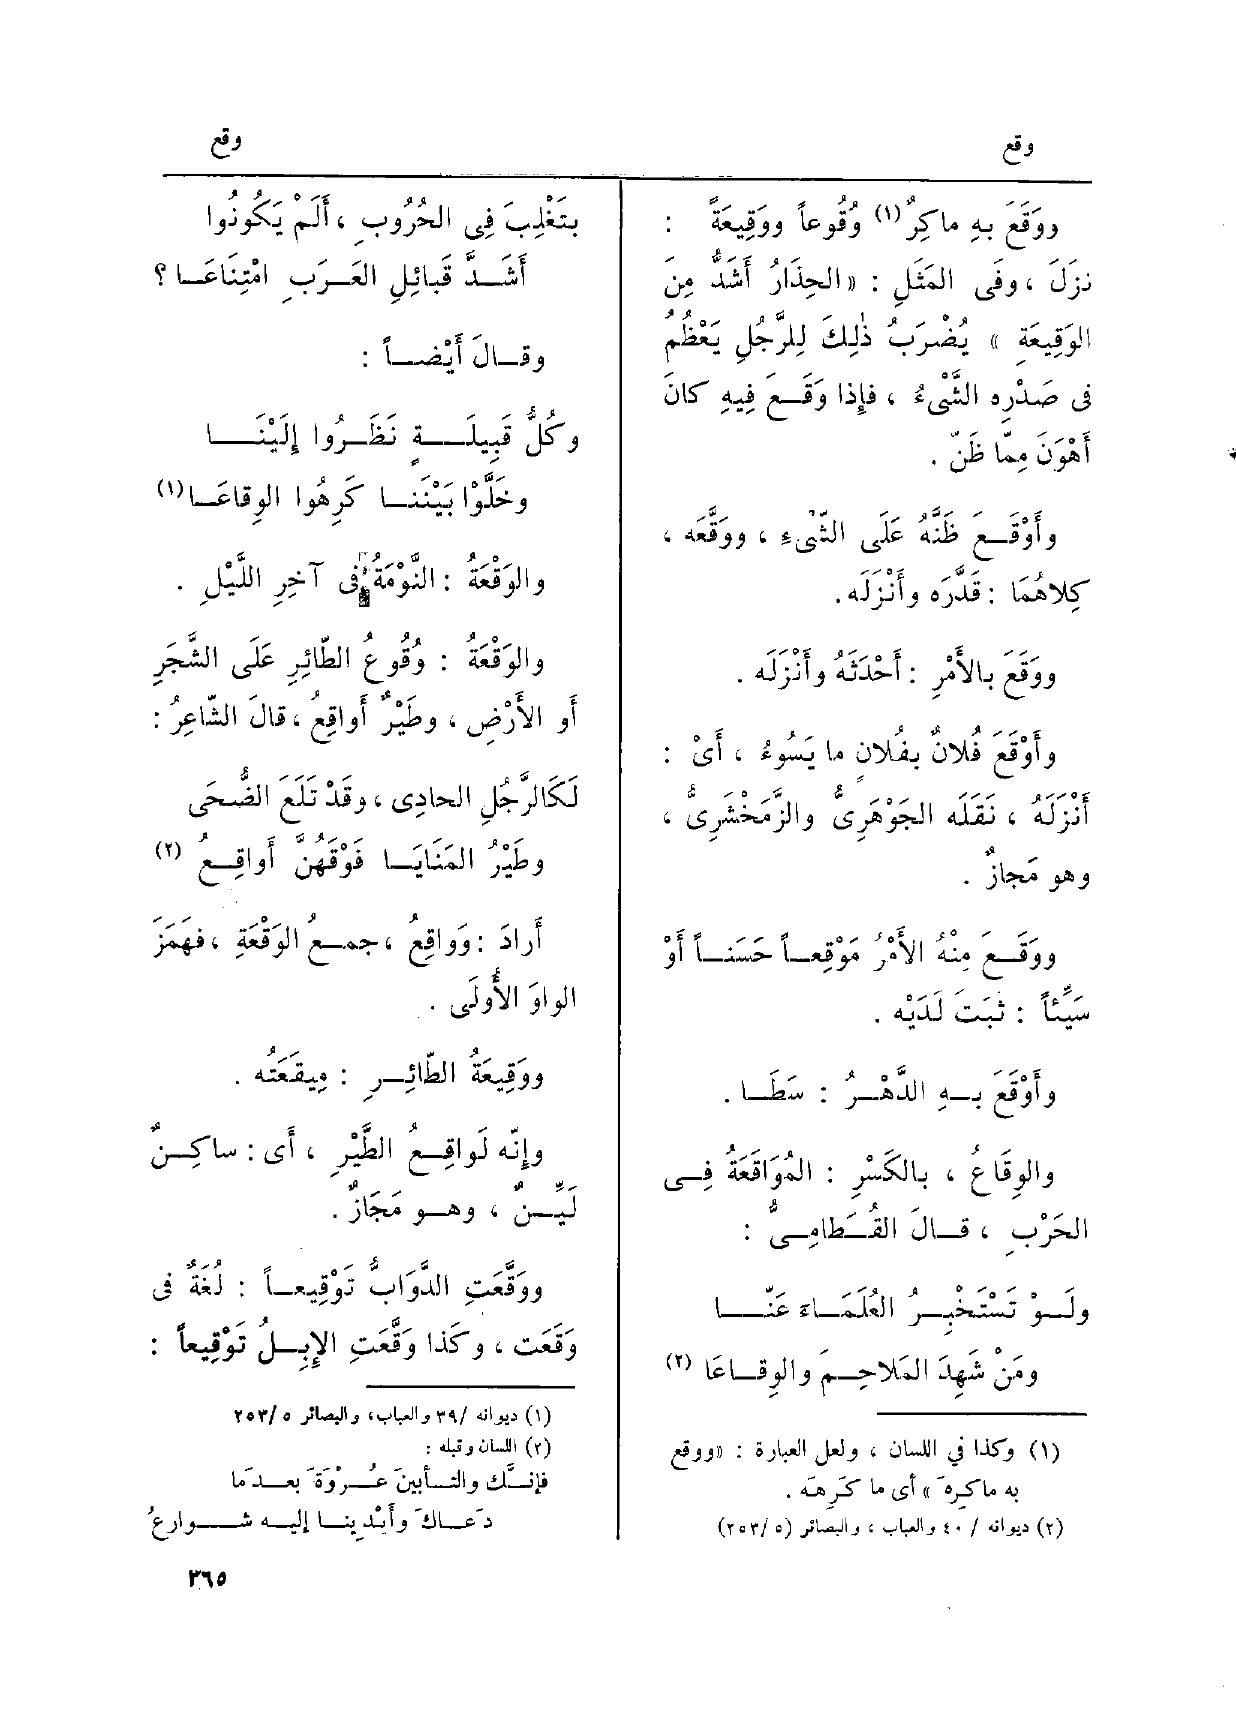 وقع
وقع
ووَقَعَ بهِ ماكِرٌ (١) وُقُوعاً ووَقِيعَةً :
نزَلَ ، وفَى المَثَلِ : « الحِذَارُ أَشَدُّ مِنَ
الوَقِيعَةِ » يُضْرَبُ ذٰلِكَ لِلرَّجُلِ يَعْظُمُ
فى صَدْرِه الشَّىْءُ ، فإِذا وَقَعَ فِيهِ كانَ
أَهْوَنَ مِمّا ظَنّ .
وأَوْقَعَ ظَنَّهُ عَلَى الشَّىْءِ ، ووَقَّعَه ،
كِلاهُمَا : قَدَّرَه وأَنْزَلَه .
ووَقَعَ بالأَمْرِ : أَحْدَثَهُ وأَنْزَلَه .
وأَوْقَعَ فُلانٌ بفُلانٍ ما يَسُوءُ ، أَىْ :
أَنْزَلَهُ ، نَقَلَه الجَوْهَرِىُّ والزَّمَخْشَرِىُّ ،
وهو مَجازٌ .
ووَقَعَ مِنْهُ الأَمْرُ مَوْقِعاً حَسَناً أَوْ
سَيِّئاً : ثَبَتَ لَدَيْه .
وأَوْقَعَ بهِ الدَّهْرُ : سَطَا .
والوِقَاعُ ، بالكَسْرِ : المُوَاقَعَةُ فِى
الحَرْبِ ، قالَ القُطامِىُّ :
ولَوْ تَسْتَخْبِرُ العُلَمَاءَ عَنَّا
ومَنْ شَهِدَ المَلاحِمَ والوِقاعَا (٢)
(١) وكذا في اللسان ، ولعل العبارة : «ووقع
به ماكرهَ » أى ما كَرِهَه .
(٢) ديوانه / ٤٠ والعباب ، والبصائر (٥ / ٢٥٣)
بتَغْلِبَ فِى الحُرُوبِ ، أَلَمْ يَكُونُوا
أَشَدَّ قَبائِلِ العَرَبِ امْتِنَاعَا ؟
وقالَ أَيْضاً :
وكُلُّ قَبِيلَةٍ نَظَرُوا إِلَيْنَا
وخَلَّوْا بَيْنَنا كَرِهُوا الوِقاعَا (١)
والوَقْعَةُ : النَّوْمَةُ فى آخِرِ اللَّيْلِ .
والوَقْعَةُ : وُقُوعُ الطّائِرِ عَلَى الشَّجَرِ
أو الأَرْضِ ، وطَيْرٌ أَواقِعُ ، قالَ الشّاعِرُ :
لَكالرَّجُلِ الحادِى ، وقَدْ تَلَعَ الضُّحَى
وطَيْرُ المَنَايَا فَوْقَهُنَّ أَواقِعُ (٢)
أَرادَ : وَواقِعُ ، جمعُ الوَقْعَةِ ، فهَمَزَ
الواوَ الأُولَى .
ووَقِيعَةُ الطّائِرِ : مِيقَعَتُه .
وإِنّه لَواقِعُ الطَّيْرِ ، أَى : ساكِنٌ
لَيِّنٌ ، وهو مَجَازٌ .
ووَقَّعَتِ الدَّوَابُّ تَوْقِيعاً : لُغَةٌ فى
وَقَعَت ، وكَذا وَقَّعَتِ الإِبِلُ تَوْقِيعاً :
(١) ديوانه /٣٩ والعباب، والبصائر ٥ /٢٥٣
(٢) اللسان وقبله :
فإنّكَ والتأبينَ عُرْوَةَ بعدَما
دَعاكَ وأيْدِينا إليه شوارعُ
٣٦٥